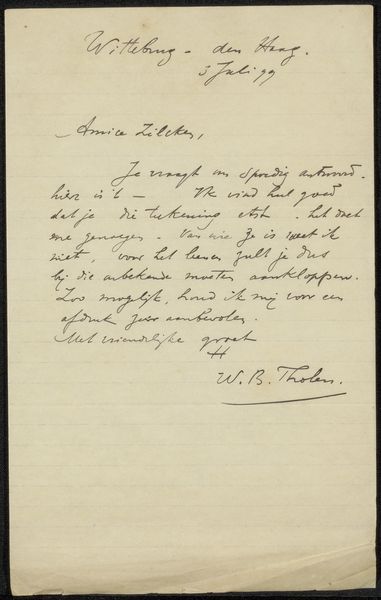 Wittebrug - den Haag.
3 Juli 99
Amice Zilcken,
Je vraagt om spoedig antwoord.
hier is 't — Ik vind heel goed
dat je die teekening etst. Het doet
me genoegen. Van wie ze is weet ik
niet, voor het leenen zult je dus
bij die onbekende moeten aankloppen.
Zoo mogelijk, houd ik mij voor een
afdruk zeer aanbevolen.
Met vriendelijke groet
W. B. Tholen.